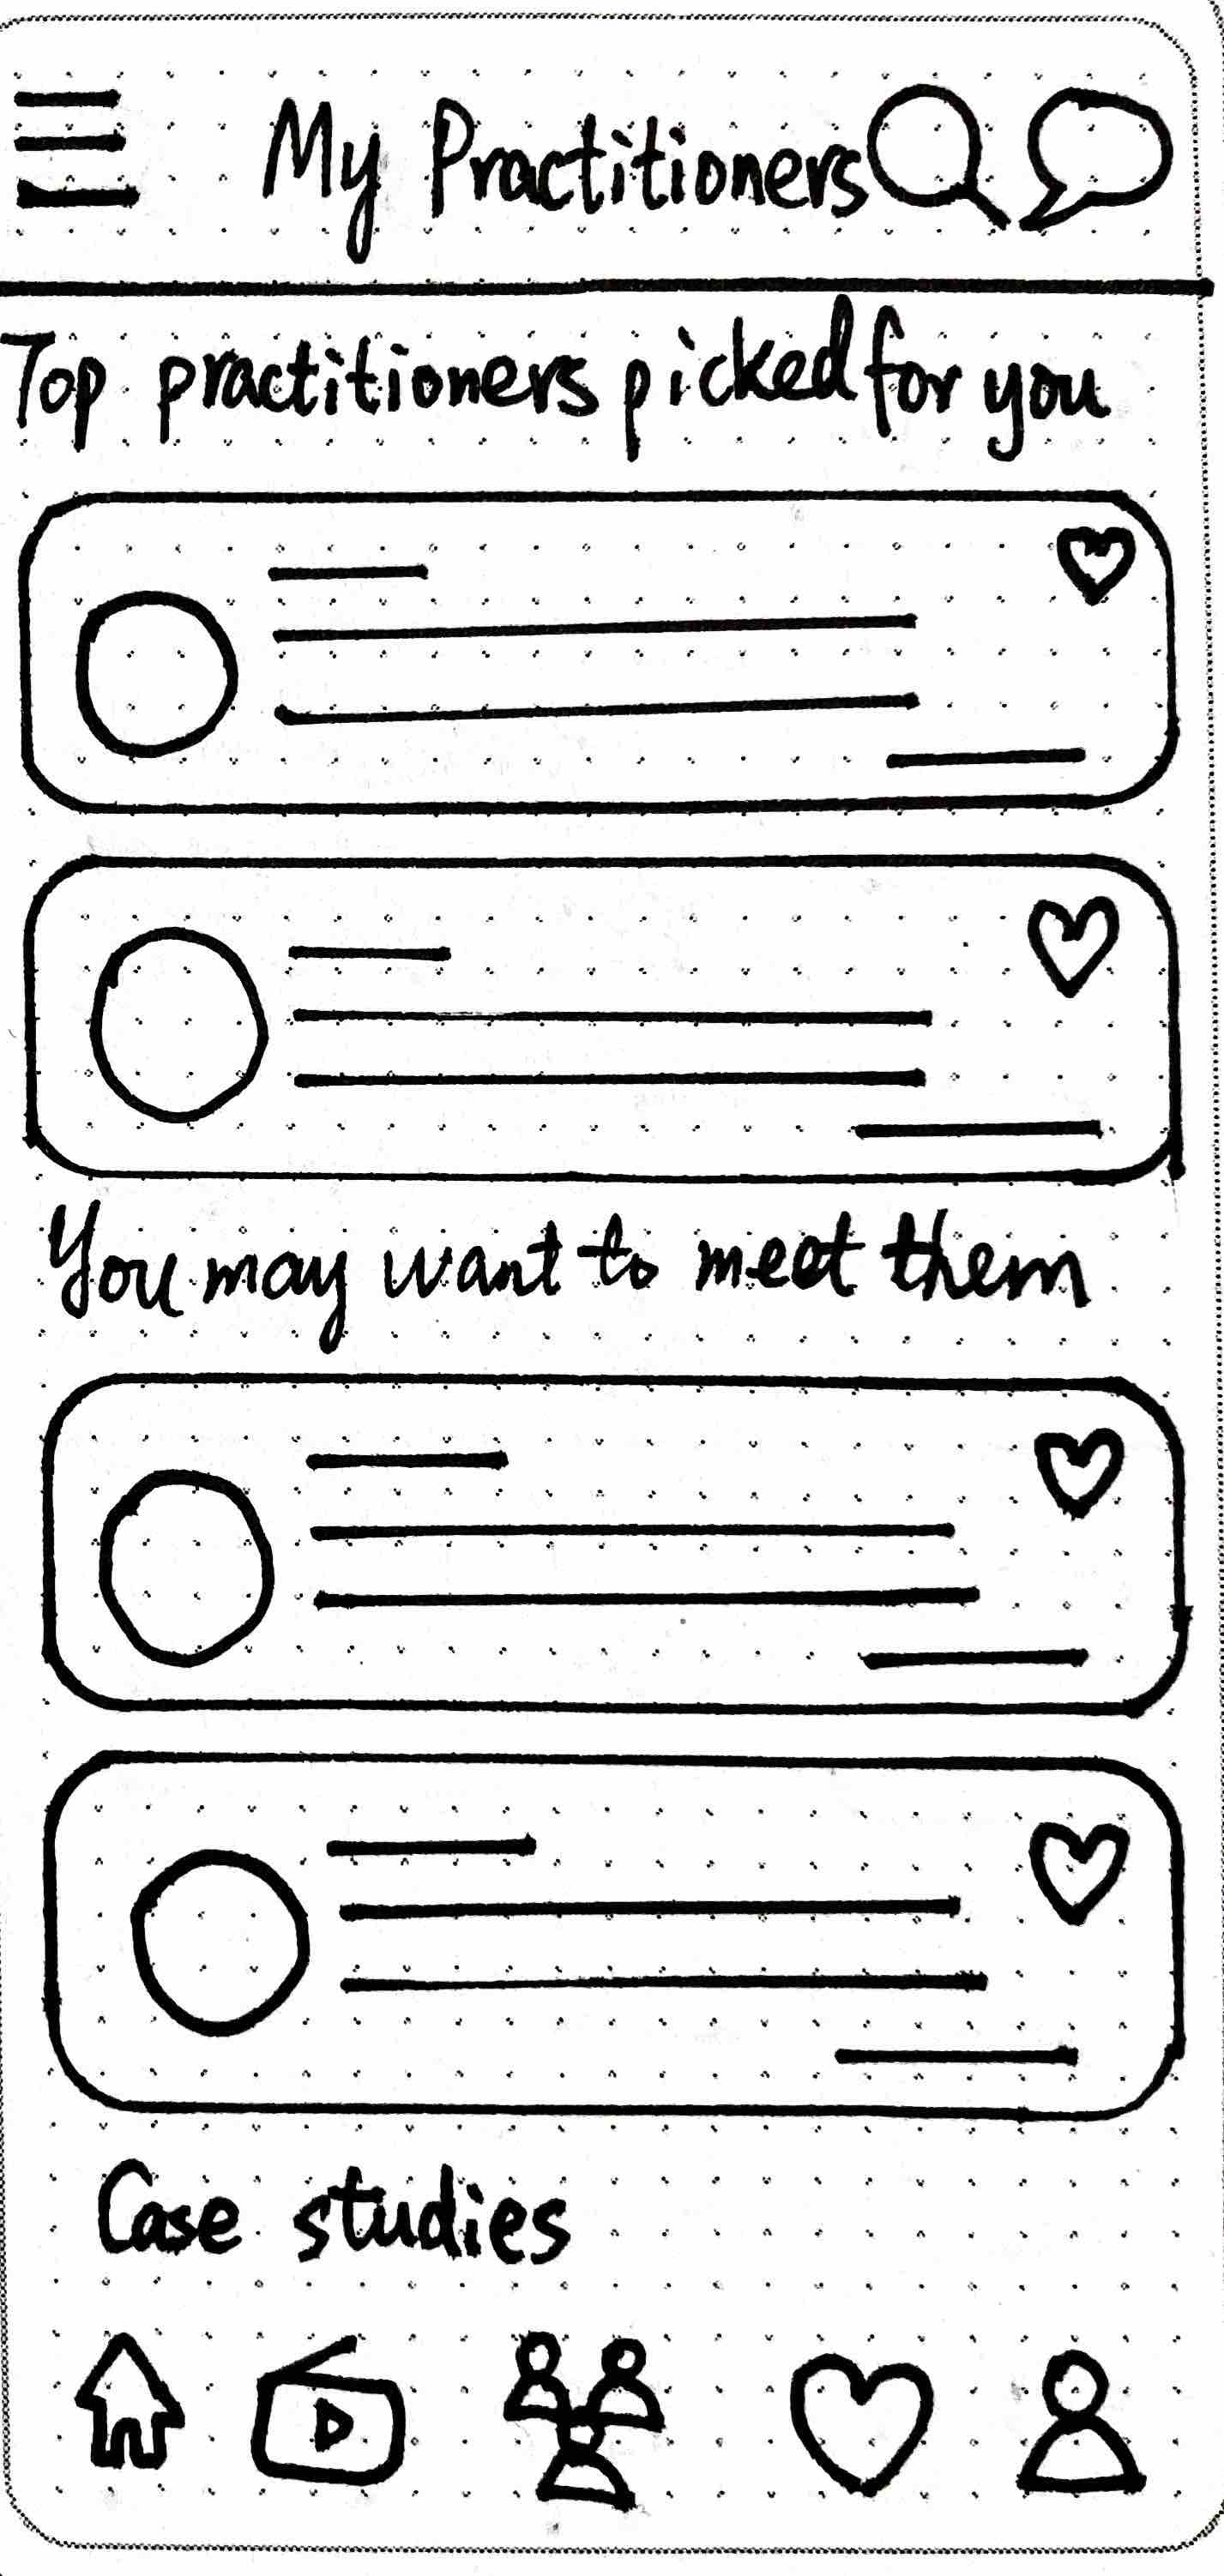 My Practitioners
Top practitioners picked for you
You may want to meet them
Case studies